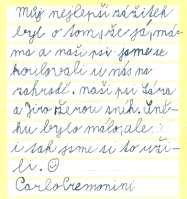 Můj nejlepší zážitek
byl o tom, že já, má-
ma a naši psi jsme se
koulovali u nás na
zahradě. naši psi Sára
a Jiro žerou sníh. Sně-
hu bylo málo, ale
i tak jsme si to uži-
li. ☺
Carlo Cremonini